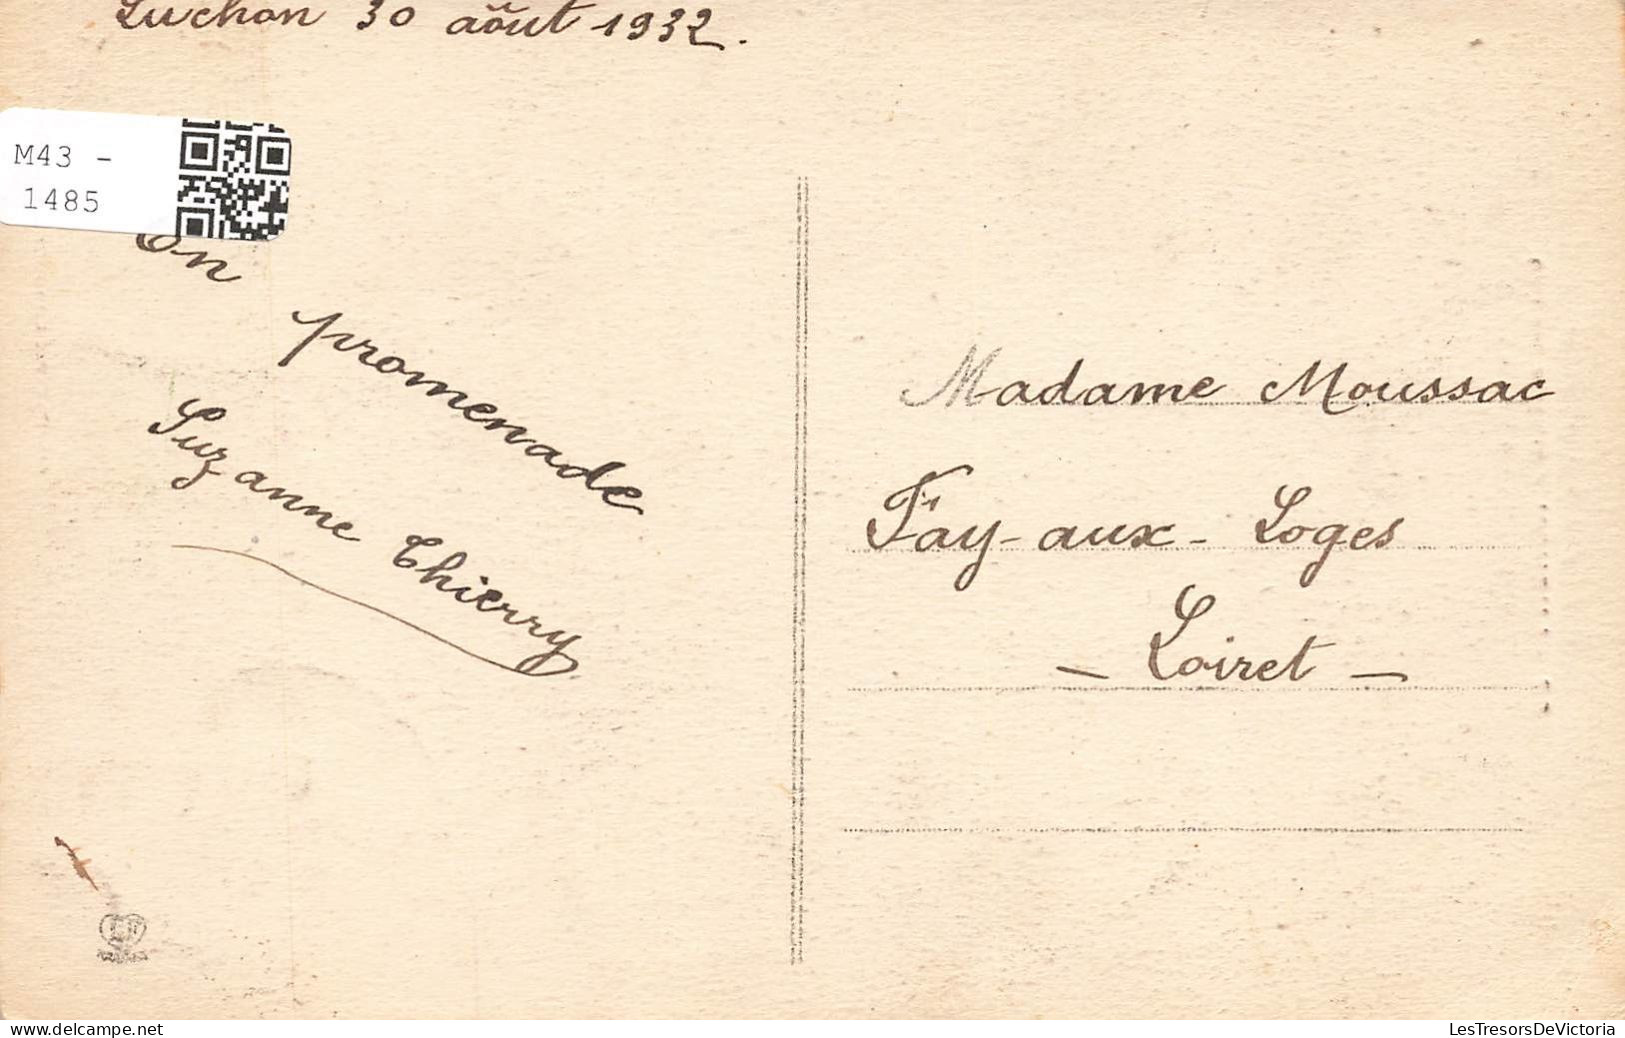 Luchon 30 août 1932.
M43 -
1485
En
promenade
Suzanne Thierry
Madame Moussac
Fay-aux-Loges
- Loiret -
delcampe.net
LesTresorsDeVictoria